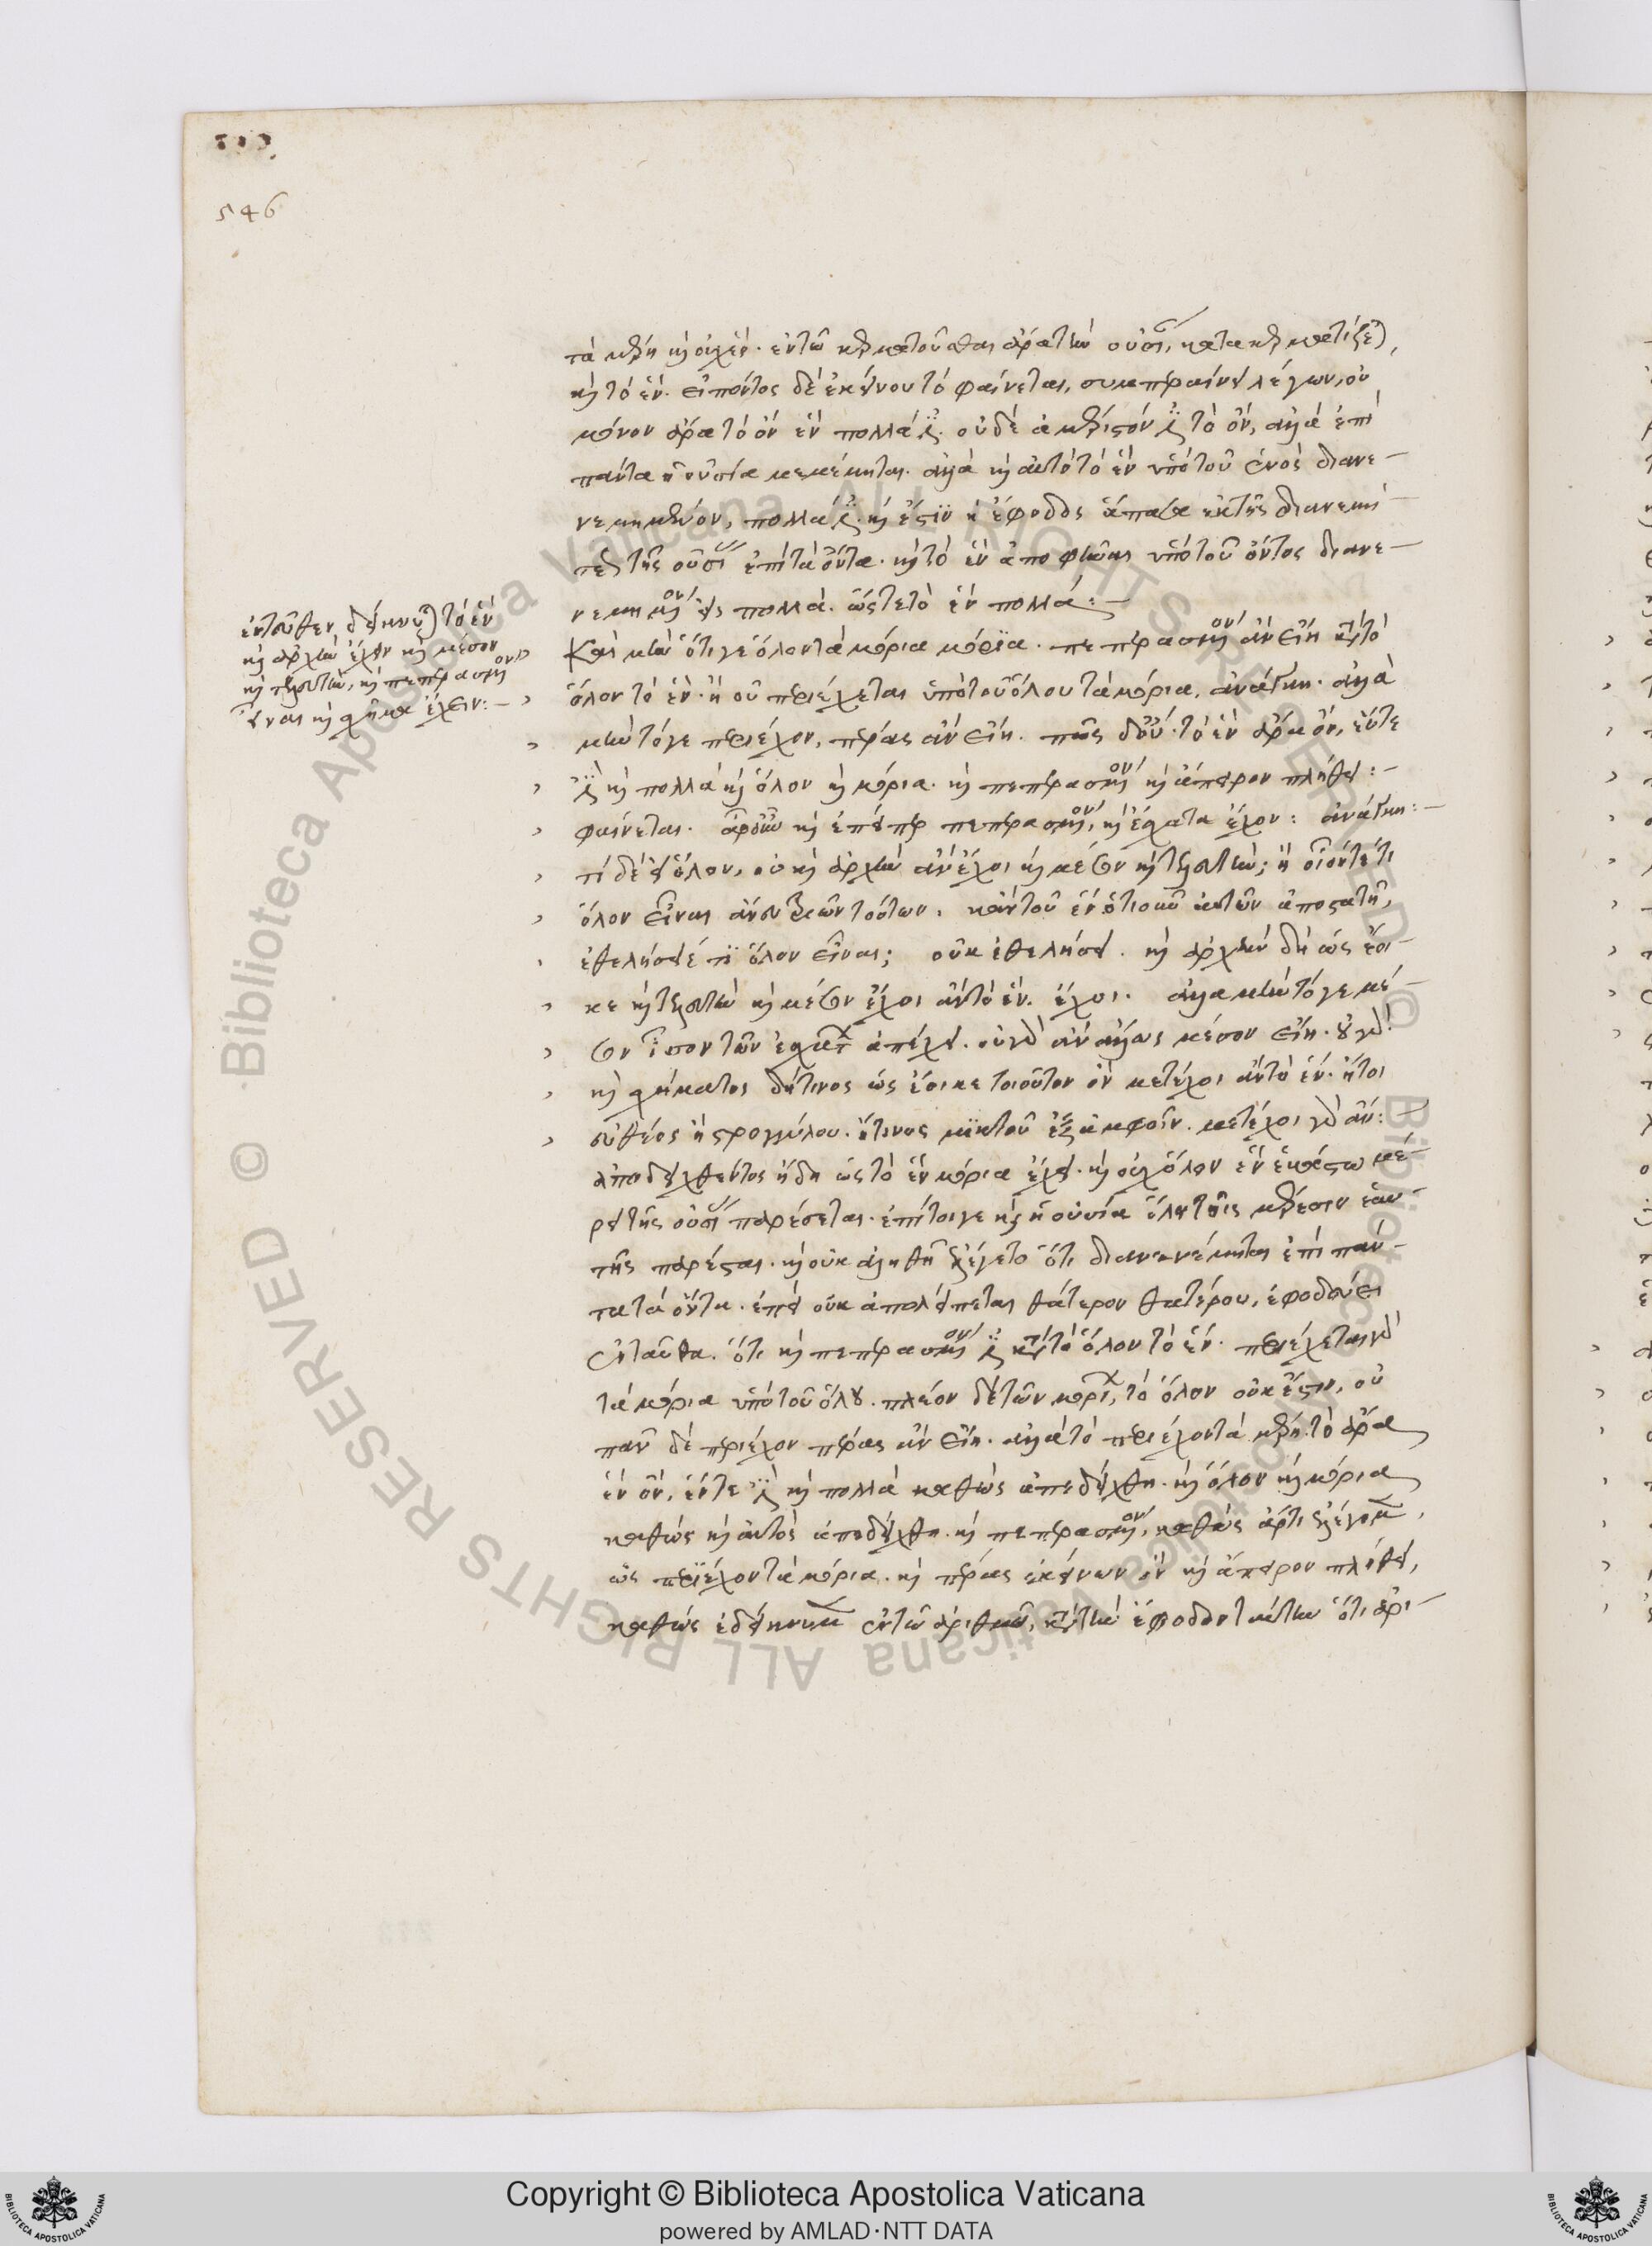 546
τὰ μέρη καὶ οὐχ ἕν. ἐν τῷ κερματοῦσθαι ἄρα τὴν οὐσίαν, κατακερματίζεται
καὶ τὸ ἕν. εἰπόντος δὲ ἐκείνου τὸ φαίνεται, συμπεραίνει λέγων, οὐ
μόνον ἄρα τὸ ὂν ἓν πολλά ἐστι. οὐδὲ ἀμέριστόν ἐστι τὸ ὄν, ἀλλὰ ἐπὶ
πάντα ἡ οὐσία νενέμηται. ἀλλὰ καὶ αὐτὸ τὸ ἓν ὑπὸ τοῦ ἑνὸς διανε-
νεμημένον, πολλά ἐστι. καὶ ἔστιν ἡ ἔφοδος ἅπασα ἐκ τῆς διανεμή-
σεως τῆς οὐσίας ἐπὶ τὰ ὄντα. καὶ τὸ ἓν ἀποφῆναι ὑπὸ τοῦ ὄντος διανε-
νεμημένον εἰς πολλά. ὥστε τὸ ἓν πολλά:-
Καὶ μὴν ὅτι γε ὅλου τὰ μόρια μόρια. πεπερασμένον ἂν εἴη κατὰ τὸ
ὅλον τὸ ἕν. ἢ οὐ περιέχεται ὑπὸ τοῦ ὅλου τὰ μόρια, ἀνάγκη. ἀλλὰ
μὴν τό γε περιέχον, πέρας ἂν εἴη. πῶς δ' οὔ. τὸ ἓν ἄρα ὄν, ἕν τε
ἐστὶ καὶ πολλὰ καὶ ὅλον καὶ μόρια. καὶ πεπερασμένον καὶ ἄπειρον πλήθει:-
φαίνεται. ἆρ' οὖν καὶ ἐπείπερ πεπερασμένον, καὶ ἔσχατα ἔχον: ἀνάγκη:-
τί δὲ εἰ ὅλον, οὐ καὶ ἀρχὴν ἂν ἔχοι καὶ μέσον καὶ τελευτήν; ἢ οἷόν τέ τι
ὅλον εἶναι ἄνευ τριῶν τούτων. κἄν του ἓν ὁτιοῦν αὐτῶν ἀποστατῇ,
ἐθελήσει ἔτι ὅλον εἶναι; οὐκ ἐθελήσει. καὶ ἀρχὴν δὴ ὡς ἔοι-
κε καὶ τελευτὴν καὶ μέσον ἔχοι ἂν τὸ ἕν. ἔχοι. ἀλλὰ μὴν τό γε μέ-
σον ἴσον τῶν ἐσχάτων ἀπέχει. οὐ γὰρ ἂν ἄλλως μέσον εἴη. οὐ γάρ.
καὶ σχήματος δή τινος ὡς ἔοικε τοιοῦτον ὂν μετέχοι ἂν τὸ ἕν. ἤτοι
εὐθέος ἢ στρογγύλου. ἤ τινος μικτοῦ ἐξ ἀμφοῖν. μετέχοι γὰρ ἄν:-
ἀποδειχθέντος ἤδη ὡς τὸ ἓν μόρια ἔχει. καὶ οὐχ ὅλον ἓν ἑκάστῳ μέ-
ρει τῆς οὐσίας παρέσεται. ἐπίτοιγε καὶ ἡ οὐσία ὅλη τοῖς μέρεσιν ἑαυ-
τῆς πάρεσται. καὶ οὐκ ἀληθῆ ἐλέγετο ὅτι διανενέμηται ἐπὶ πάν-
τα τὰ ὄντα. ἐπεὶ οὐκ ἀπολείπεται θάτερον θατέρου, ἐφοδεύει
ἐνταῦθα. ὅτι καὶ πεπερασμένον ἐστὶ κατὰ τὸ ὅλον τὸ ἕν. περιέχεται γὰρ
τὰ μόρια ὑπὸ τοῦ ὅλου. πλέον δὲ τῶν μορίων, τὸ ὅλον οὐκ ἔστιν, οὐ
πᾶν δὲ περιέχον πέρας ἂν εἴη. ἀλλὰ τὸ περιέχον τὰ μέρη. τὸ ἄρα
ἓν ὄν, ἕν τε ἐστὶ καὶ πολλὰ καθὼς ἀπεδείχθη. καὶ ὅλον καὶ μόρια
καθὼς καὶ αὐτὸς ἀπεδείχθη. καὶ πεπερασμένον, καθὼς ἄρτι ἐλέγομεν,
ὡς περιέχον τὰ μόρια. καὶ πέρας ἐκείνων ὂν καὶ ἄπειρον πλήθει,
καθὼς ἐδείκνυμεν ἐν τῷ ἀριθμῷ, κατὰ τὴν ἔφοδον ταύτην ὅτι ἀρι-
ἐντεῦθεν δείκνυται τὸ ἓν
καὶ ἀρχὴν ἔχειν καὶ μέσον
καὶ τελευτήν, καὶ πεπερασμένον
εἶναι καὶ σχῆμα ἔχειν:-
Copyright © Biblioteca Apostolica Vaticana
powered by AMLAD·NTT DATA
© Biblioteca Apostolica Vaticana ALL RIGHTS RESERVED
© Biblioteca Apostolica Vaticana ALL RIGHTS RESERVED